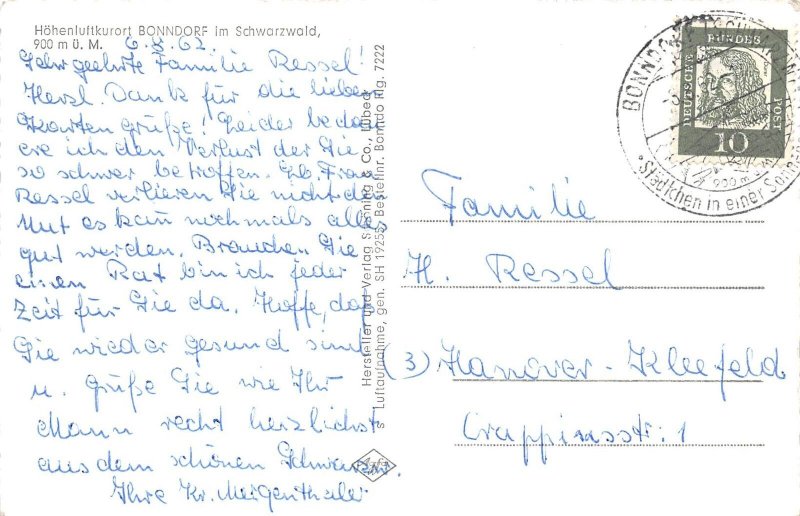 Höhenluftkurort BONNDORF im Schwarzwald,
900 m ü. M.
6.8.62.
Sehr geehrte Familie Ressel!
Herzl. Dank für die lieben
Karten grüße! Leider bedau
ere ich den Verlust der Sie
so schwer betroffen. Lb. Frau
Ressel verlieren Sie nicht den
Mut es kann nochmals alles
gut werden. Brauchen Sie
einen Rat bin ich jeder
Zeit für Sie da. Hoffe, daß
Sie wieder gesund sind
u. grüße Sie wie Ihr
Mann recht herzlichst
aus dem schönen Schwarzw.
Ihre Kr. Meigenthaler
Hersteller und Verlag Schöning & Co., Lübeck
Luftaufnahme, gen. SH 19255 Bestellnr. Bonndo Rlg. 7222
Agfa
BONNDORF
900 m ü. M.
Städtchen in einer
DEUTSCHE
BUNDES
POST
10
Familie
H. Ressel
(3) Hanover-Kleefeld
Crappiusstr. 1